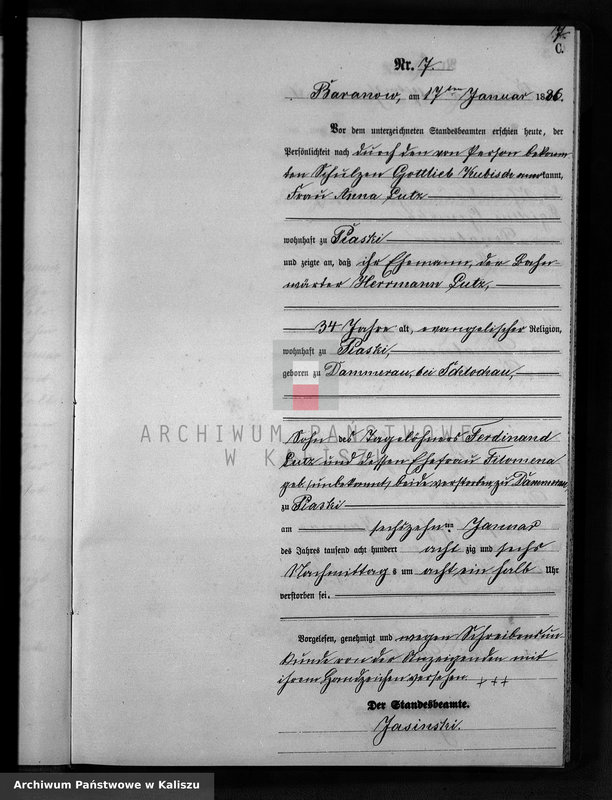 7.
C.
Nr. 7.
Baranow, am 17ten Januar 1886.
Vor dem unterzeichneten Standesbeamten erschien heute, der
Persönlichkeit nach durch den von Person bekann
ten Schulzen Gottlieb Kubisch anerkannt,
Frau Anna Lutz
wohnhaft zu Piaski
und zeigte an, daß ihr Ehemann, der Bahn
wärter Herrmann Lutz,
34 Jahre alt, evangelischer Religion,
wohnhaft zu Piaski,
geboren zu Dammerau, bei Schlochau,
ARCHIWUM PAŃSTWOWE
W KALISZU
Sohn des Tagelöhners Ferdinand
Lutz und dessen Ehefrau Filomena
geb. (unbekannt) beide verstorben zu Dammerau,
zu Piaski
am sechszehnten Januar
des Jahres tausend acht hundert achtzig und sechs
Nachmittags um acht ein halb Uhr
verstorben sei.
Vorgelesen, genehmigt und wegen Schreibensun
kunde von der Anzeigenden mit
ihrem Handzeichen versehen. +++
Der Standesbeamte.
Jasinski.
Archiwum Państwowe w Kaliszu